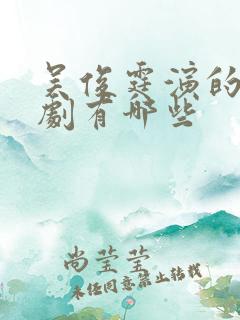 吴俊霆演的
劇有哪些
尚莹莹
未经同意禁止转载